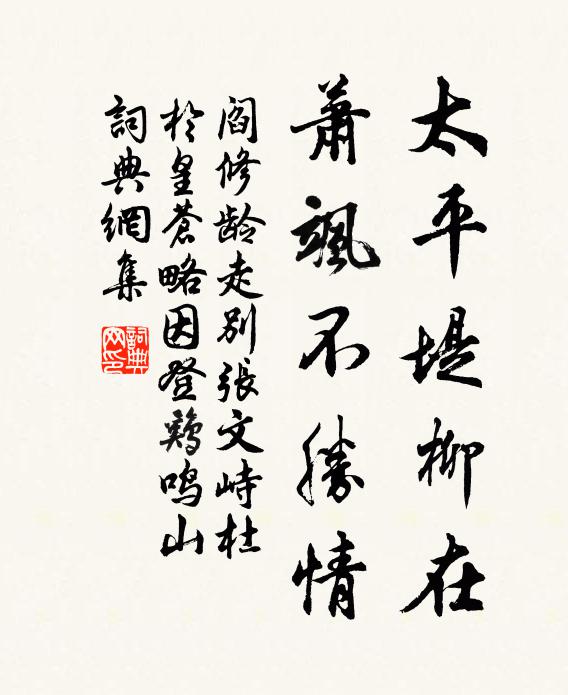 太平堤柳在
蕭颯不勝情
阎修龄走别張文峙杜
於皇蒼略因登鷄鸣山
詞典網集
詞典
网印